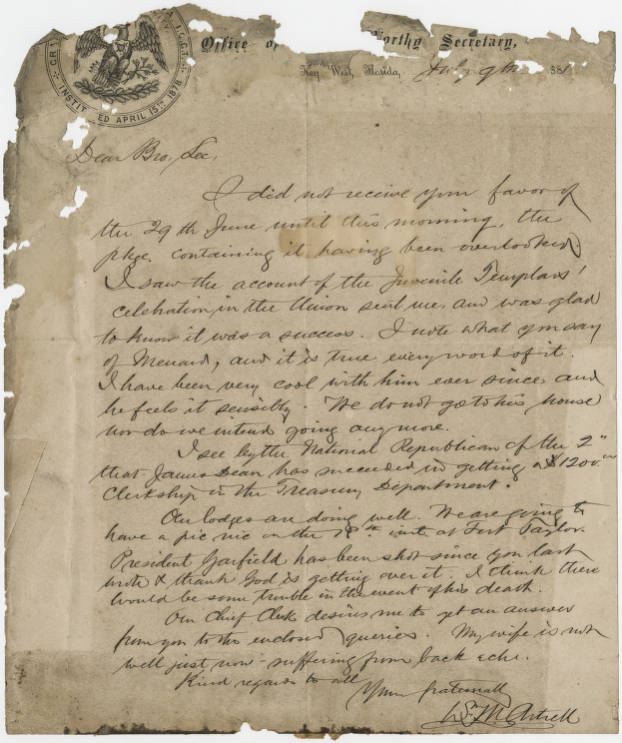 I.O.G.T.
INSTIT ED APRIL 15TH 1878
Office of orthy Secretary,
Key West, Florida, July 9th 881
Dear Bro. Lee,
I did not receive your favor of
the 29th June until this morning, the
pkge. containing it having been overlooked.
I saw the account of the Juvenile Templars'
celebration in the Union sent me, and was glad
to know it was a success. I note what you say
of Menard, and it is true every word of it.
I have been very cool with him ever since, and
he feels it sensibly. We do not go to his house
nor do we intend going any more.
I see by the National Republican of the 2"
that James Dean has succeeded in getting a $1200.
Clerkship in the Treasury Department.
Our lodges are doing well. We are going to
have a pic nic on the inst. at Fort Taylor.
President Garfield has been shot since you last
wrote & thank God is getting over it. I think there
would be some trouble in the event of his death.
Our Chief Clerk desires me to get an answer
from you to the enclosed queries. My wife is not
well just now - suffering from back ache.
Kind regards to all
Yours fraternally
W M Artrell